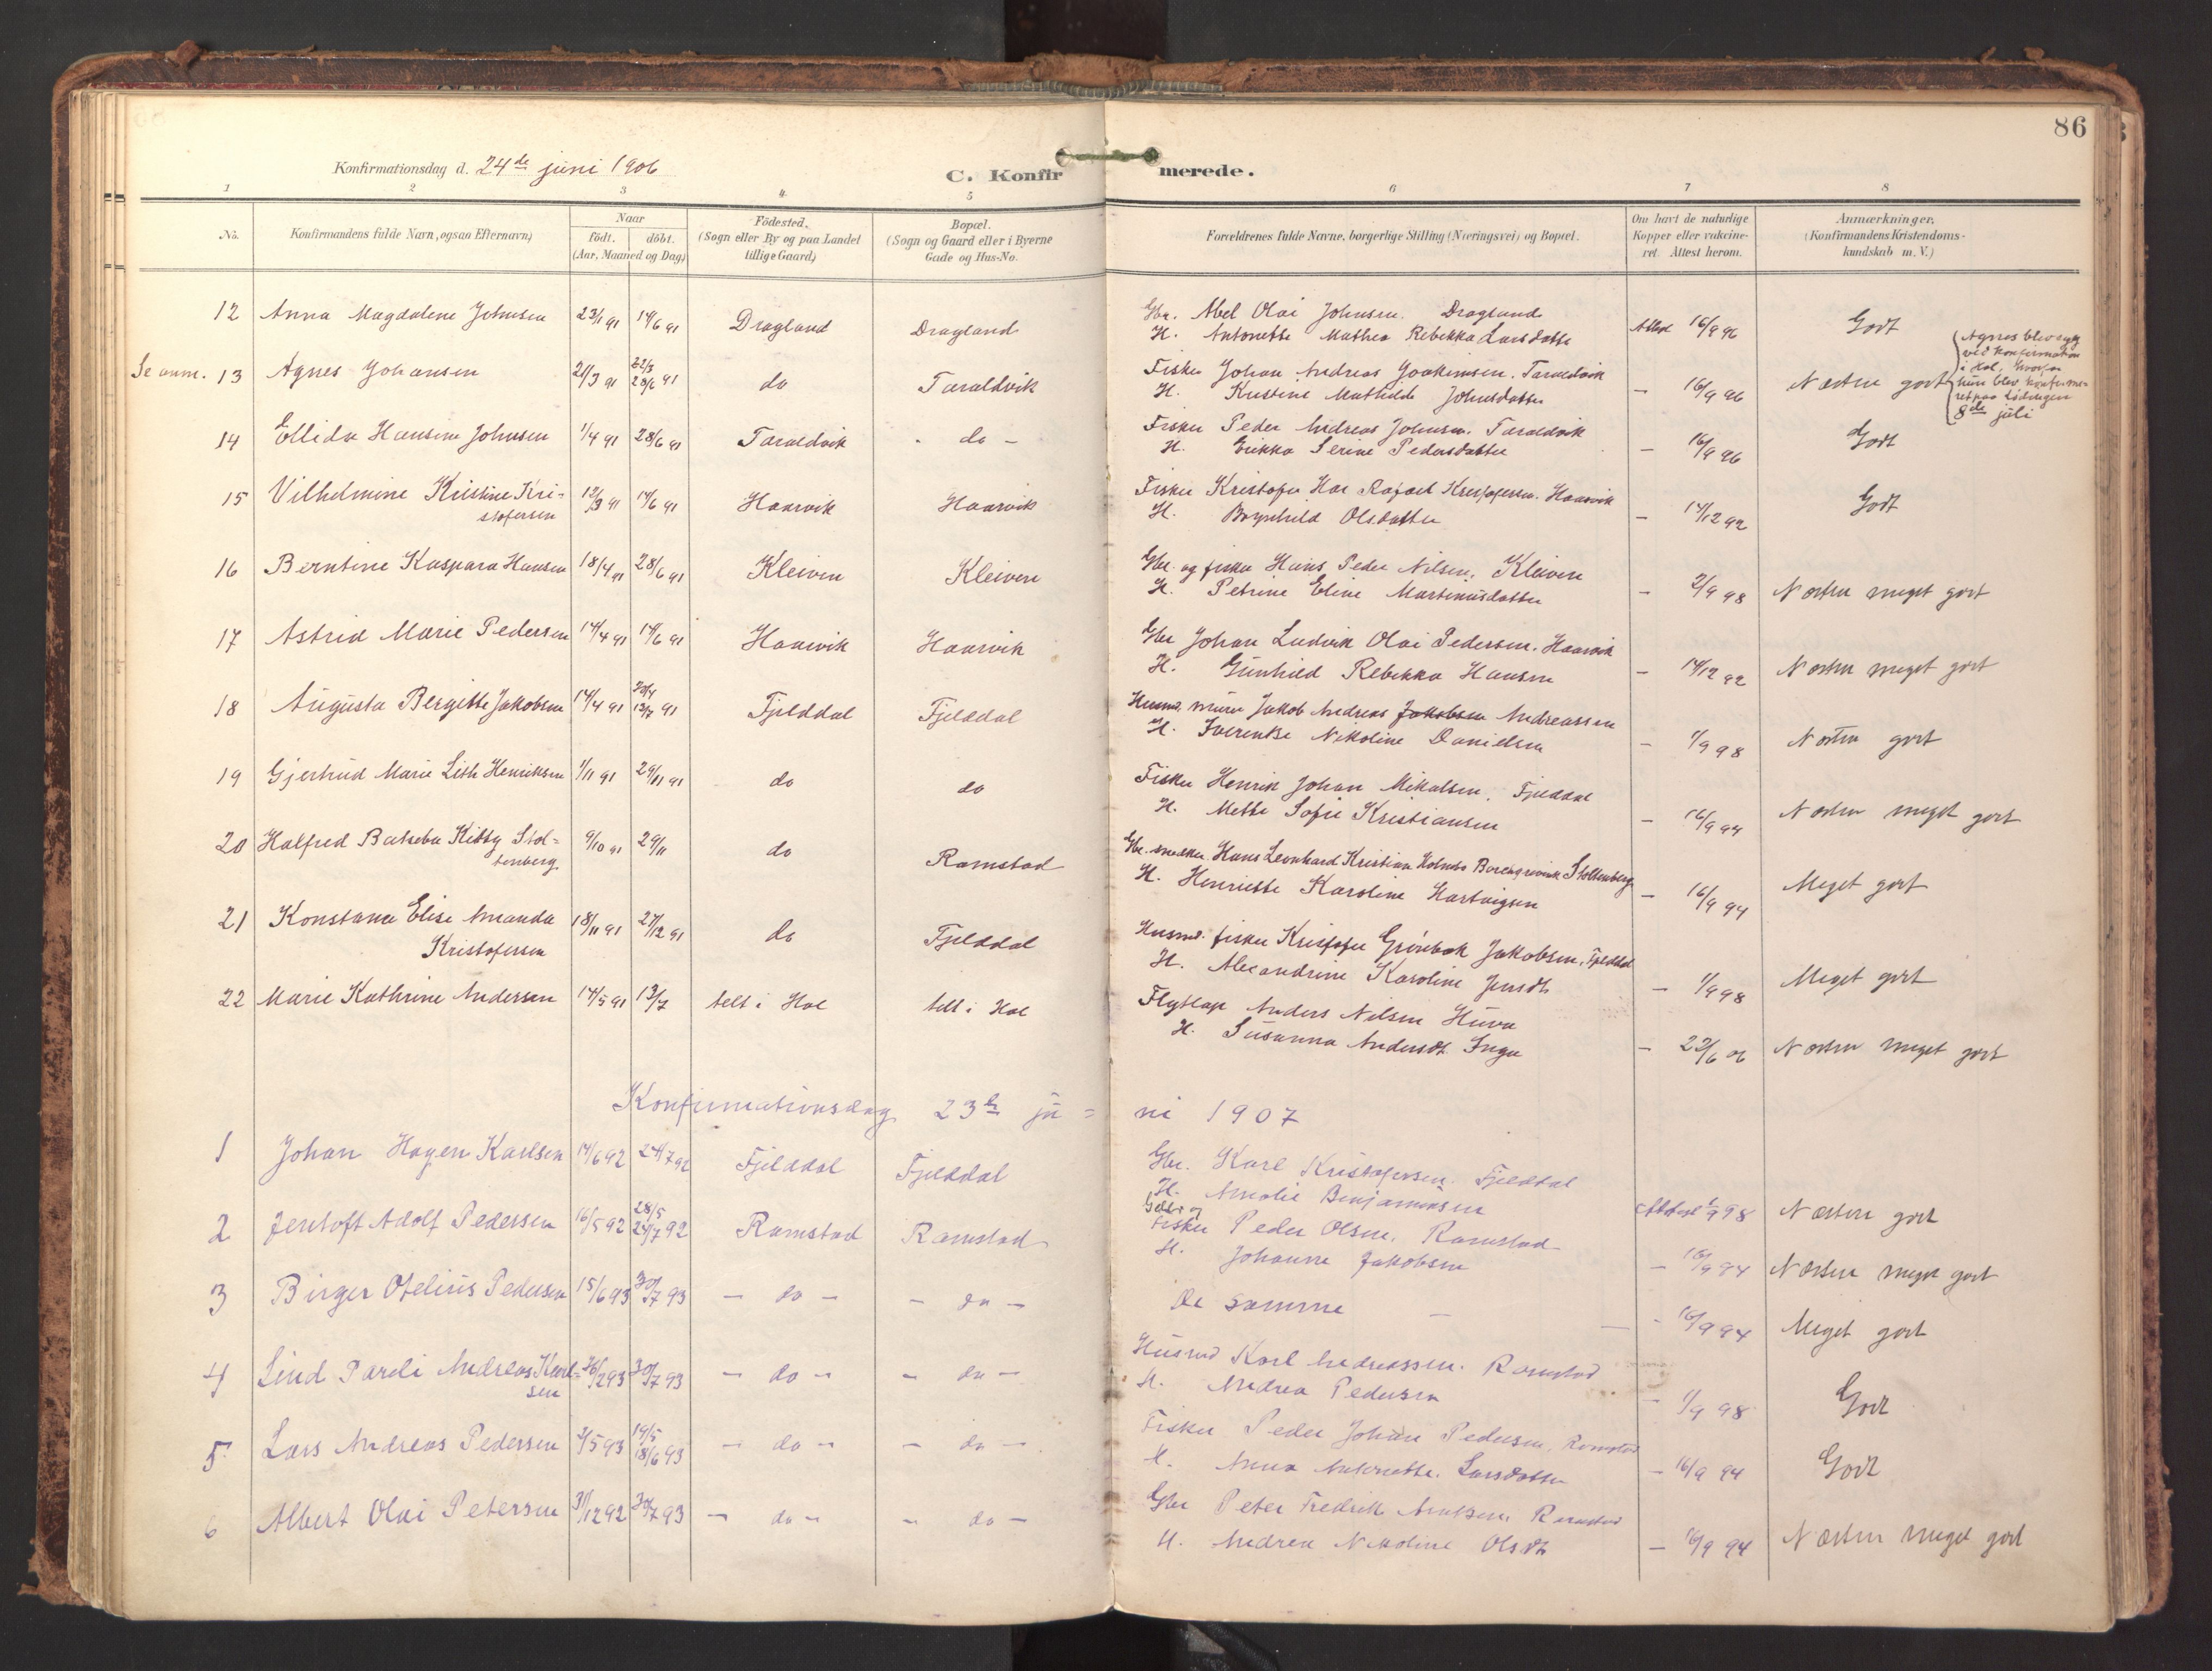 86
Konfirmationsdag d. 24de juni 1906
C. Konfirmerede.
1 2 3 4 5 6 7 8
No.
Konfirmandens fulde Navn, ogsaa Efternavn)
Naar
födt. döbt.
(Aar, Maaned og Dag)
Födested.
(Sogn eller By og paa Landet
tillige Gaard)
Bopæl.
(Sogn og Gaard eller i Byerne
Gade og Hus-No.
Forældrenes fulde Navne, borgerlige Stilling (Næringsvei) og Bopæl.
Om havt de naturlige
Kopper eller vakcine-
ret. Attest herom.
Anmærkninger.
(Konfirmandens Kristendoms-
kundskab m. V.)
12 Anna Magdalene Johnsen 23/1 91 14/6 91 Dragland Dragland Gbr. Abel Olai Johnsen. Dragland 16/9 96 Godt
H. Antonette Mathea Rebekka Larsdatter
Se anm. 13 Agnes Johansen 21/3 91 22/3 28/6 91 do Taraldvik Fisker Johan Andreas Joakimsen. Taraldvik — 16/9 96 Næsten godt
H. Kristine Mathilde Johnsdatter
Agnes blev syg
ved konfirmation
i Hol, hvorfor
hun blev konfirme-
ret paa Lødingen
8de juli
14 Ellida Hansine Johnsen 1/4 91 28/6 91 Taraldvik - do - Fisker Peder Andreas Johnsen. Taraldvik — 16/9 96 Godt
H. Erikka Serine Pedersdatter
15 Vilhelmine Kristine Kri-
stofersen 12/3 91 14/6 91 Haarvik Haarvik Fisker Kristofer Rafael Kristofersen. Haarvik — 14/12 92 Godt
H. Brynhild Olsdatter
16 Berntine Kaspara Hansen 18/4 91 28/6 91 Kleiven Kleiven Gbr. og fisker Hans Peder Nilsen, Kleiven — 2/9 98 Næsten meget godt
H. Petrine Eline Martinusdatter
17 Astrid Marie Pedersen 14/4 91 14/6 91 Haarvik Haarvik Gbr Johan Ludvik Olai Pedersen. Haarvik — 14/12 92 Næsten meget godt
H. Gunhild Rebekka Hansen
18 Augusta Bergitte Jakobsen 14/4 91 13/7 91 Fjelddal Fjelddal Husmd. murer Jakob Andreas Jakobsen Andreassen — 1/9 98 Næsten godt
H. Nikoline Danielsen
19 Gjertrud Marie Lith Henriksen 1/11 91 29/11 91 do do Fisker Henrik Johan Mikalsen, Fjelddal — 16/9 94 Næsten meget godt
H. Mette Sofie Kristiansen
20 Halfred Batseba Kitty Stol-
tenberg 9/10 91 29/11 do Ramstad Gbr. snedker Hans Leonhard Kristian Stoltenberg — 16/9 94 Meget godt
H. Henriette Karoline Hartvigsen
21 Konstance Elise Amanda
Kristofersen 18/11 91 27/12 91 do Fjelddal Husmd. fisker Kristofer Grönbek Jakobsen, Fjelddal — 1/9 98 Meget godt
H. Alexandrine Karoline Jensdt.
22 Marie Kathrine Andersen 14/5 91 13/7 telt i Hol telt i Hol Flytlap Anders Nilsen Huva — 22/6 06 Næsten meget godt
H. Susanna Andersdt. Inga
Konfirmationsdag 23de ju = ni 1907
1 Johan Hagen Karlsen 14/6 92 24/7 92 Fjelddal Fjelddal Gbr. Karl Kristofersen. Fjelddal 1/9 98 Næsten godt
H. Amalie Benjaminsen
2 Jentoft Adolf Pedersen 16/5 92 28/5 24/7 92 Ramstad Ramstad Gbr. og
Fisker Peder Olsen. Ramstad — 16/9 94 Næsten meget godt
H. Johanna Jakobsen
3 Birger Ofelius Pedersen 15/6 93 30/7 93 — do — — do — De samme — 16/9 94 Meget godt
4 Lind Pareli Andreas Karl-
sen 26/2 93 30/7 93 — do — — do — Husmd Karl Andreassen. Ramstad — 1/9 98 Godt
H. Andrea Pedersen
5 Lars Andreas Pedersen 2/5 93 14/5 18/6 93 — do — — do — Fisker Peder Johan Pedersen, Ramstad — 16/9 94 Godt
H. Anna Larsdatter
6 Albert Olai Petersen 31/12 92 30/7 93 — do — — do — Gbr Peter Fredrik Arntsen. Ramstad — 16/9 94 Næsten meget godt
H. Andrea Nikoline Olsdt.